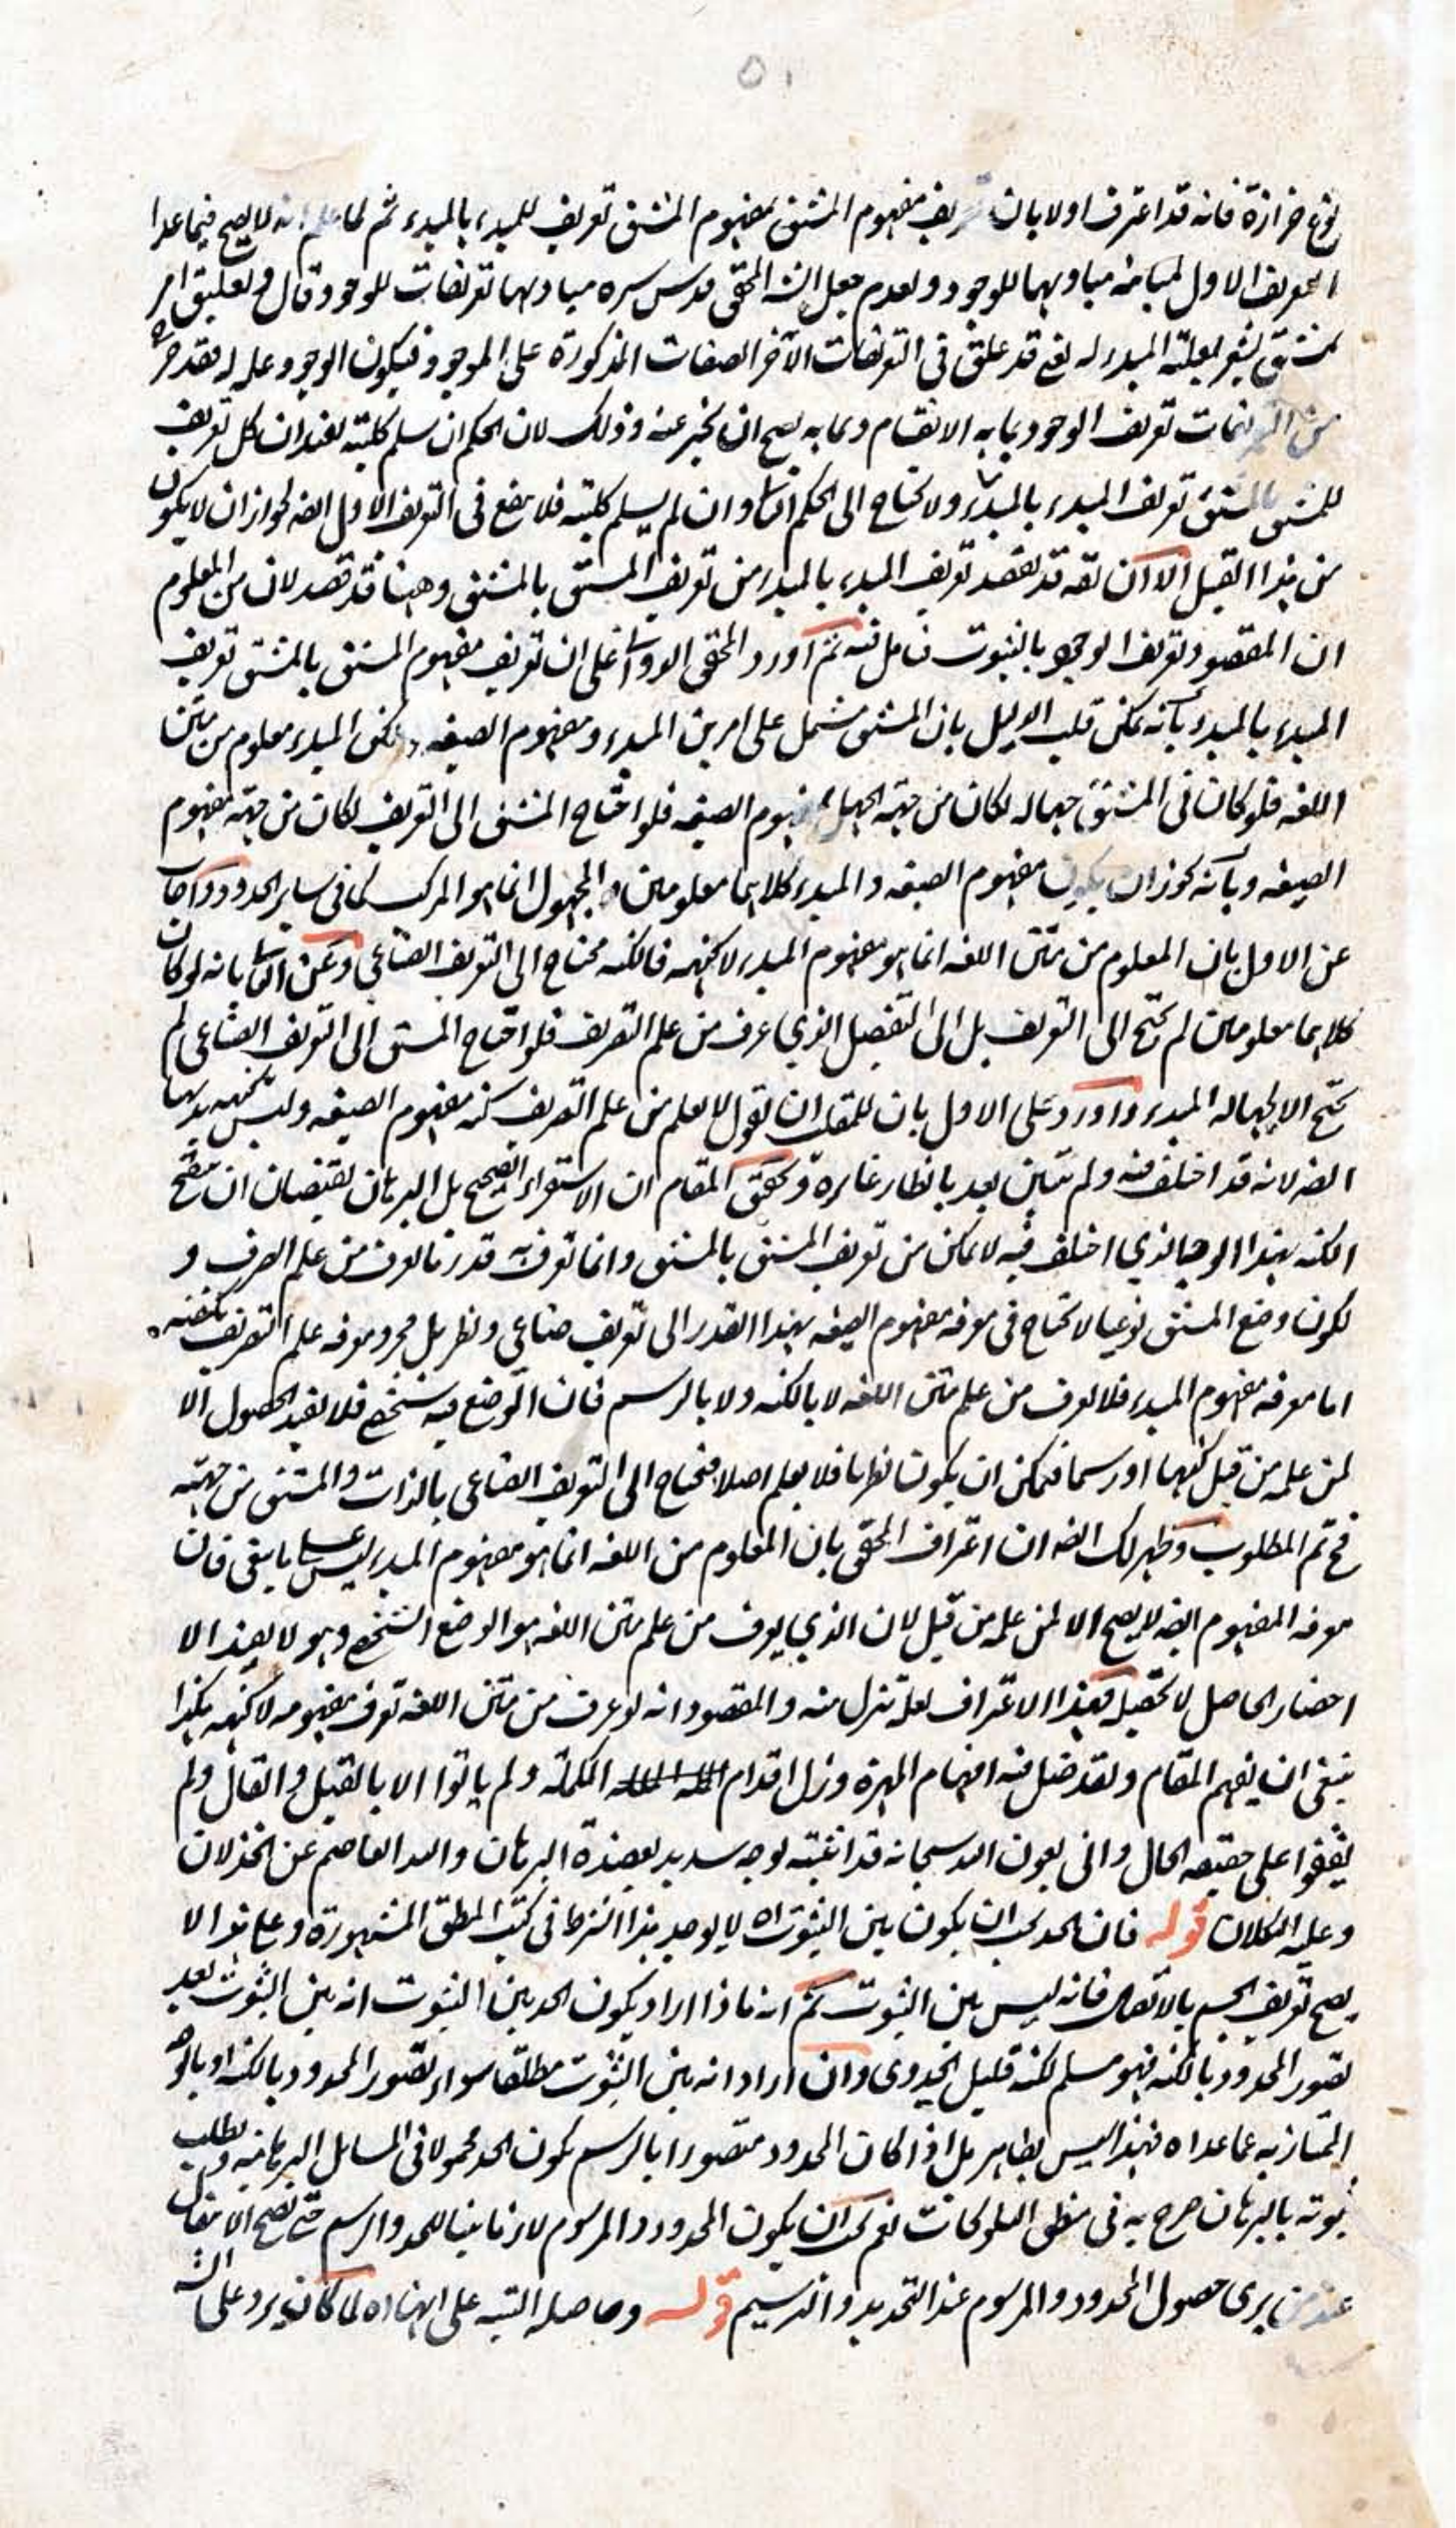 ٥١
نوع حزازة فانه قد اعترف اولا بان تعريف مفهوم المشتق بمفهوم المشتق تعريف للمبدء بالمبدء ثم لما علم انه لا يصح فيما عدا
التعريف الاول لمباينة مباديهما للوجود ولعدم جعل الش المحقق قدس سره مباديهما تعريفات للوجود وقال وتعليق امر
بمشتق يشعر بعلية المبدء له يعني قد علق في التعريفات الآخر الصفات المذكورة على الموجود فيكون الوجود علة له فقد
من التعريفات تعريف الوجود بما به الانقسام وبما به يصح ان يخبر عنه وذلك لان الحكم ان سلم كلية يفيد ان كل تعريف
للمشتق بالمشتق تعريف المبدء بالمبدء ولا يحتاج الى الحكم الثاني وان لم يسلم كلية فلا ينفع في التعريف الاول ايضه لجواز ان لا يكون
من هذا القبيل الا ان يقه قد يقصد تعريف المبدء بالمبدء من تعريف المشتق بالمشتق وههنا قد قصد لان من المعلوم
ان المقصود تعريف الوجود بالثبوت فتامل فيه ثم اورد المحقق الدواني على ان تعريف مفهوم المشتق بالمشتق تعريف
المبدء بالمبدء بانه يمكن قلب الدليل بان المشتق مشتمل على امرين المبدء ومفهوم الصيغه ولكن المبدء معلوم من متن
اللغه فلو كان في المشتق جهالة لكان من جهة الجهل بمفهوم الصيغه فلو احتاج المشتق الى التعريف لكان من جهة مفهوم
الصيغه وبانه يجوز ان يكون مفهوم الصيغه والمبدء كلاهما معلومين والمجهول انما هو المركب كما في ساير الحدود واجاب
عن الاول بان المعلوم من متن اللغه انما هو مفهوم المبدء لا كنهه فالكنه محتاج الى التعريف الصناعي وعن الثاني بانه لو كان
كلاهما معلومين لم يحتج الى التعريف بل الى التفصيل الذي عرف من علم التصريف فلو احتاج المشتق الى التعريف الصناعي لم
يحتج الا لجهالة المبدء واورد على الاول بان للمقلب ان يقول لا يعلم من علم التصريف كنه مفهوم الصيغه وليس كنهه بديهيا
ايضه لانه قد اختلف فيه ولم يتبين بعد بانظار غايرة وتحقيق المقام ان الاستقراء الصحيح بل البرهان يقتضيان ان تنقيح
الكنه بهذا الوجه الذي اختلف فيه لا يمكن من تعريف المشتق بالمشتق وانما تعرف به قدر ما يعرف من علم الصرف و
لكون وضع المشتق نوعيا لا تحتاج في معرفة مفهوم الصيغه بهذا القدر الى تعريف صناعي ونظر بل مجرد معرفة علم التصريف يكفيه
اما معرفة مفهوم المبدء فلا يعرف من علم متن اللغه لا بالكنه ولا بالرسم فان الوضع فيه شخصي فلا يفيد الحصول الا
لمن علمه من قبل كنها او رسما فيمكن ان يكون نظريا فلا يعلم اصلا فيحتاج الى التعريف الصناعي بالذات والمشتق من جهته
فح تم المطلوب وظهر لك ايضه ان اعتراف المحقق بان المعلوم من اللغه انما هو مفهوم المبدء ليس على ما ينبغي فان
معرفة المفهوم ايضه لا يصح الا لمن علمه من قبل لان الذي يعرف من علم متن اللغه هو الوضع الشخصي وهو لا يفيد الا
احضار الحاصل لا تحصيله فهذا الاعتراف لعله تنزل منه والمقصود انه لو عرف من متن اللغه تعرف مفهومه لا كنهه هكذا
ينبغي ان يفهم المقام ولقد ضل فيه افهام المهرة وزل اقدام الكملة ولم ياتوا الا بالقيل والقال ولم
يقفوا على حقيقة الحال واني بعون الله سبحانه قد اثبته لوجه سديد بعضدة البرهان والله العاصم عن الخذلان
وعليه التكلان قوله فان الحد يجب ان يكون بين الثبوت اه لا يوجد هذا الشرط في كتب المنطق المشهورة وعلى هذا لا
يصح تعريف الجسم بالاتصال فانه ليس بين الثبوت ثم انه ماذا اراد بكون الحد بين الثبوت انه بين الثبوت بعد
تصور المحدود بالكنه فهو مسلم لكنه قليل الجدوى وان اراد انه بين الثبوت مطلقا سواء تصور المحدود بالكنه او بالوجه
الممتاز به عما عداه فهذا ليس بظاهر بل اذا كان المحدود متصورا بالرسم يكون الحد محمولا في المسايل البرهانيه ويطلب
ثبوته بالبرهان صرح به في منطق التلويحات نعم يجب ان يكون المحدود والمرسوم لازما بينا للحد والرسم حتى يصح الانتقال
عند من يرى حصول المحدود والمرسوم عند التحديد والترسيم قوله وحاصله التنبيه على انها اه لما كان يرد على الش